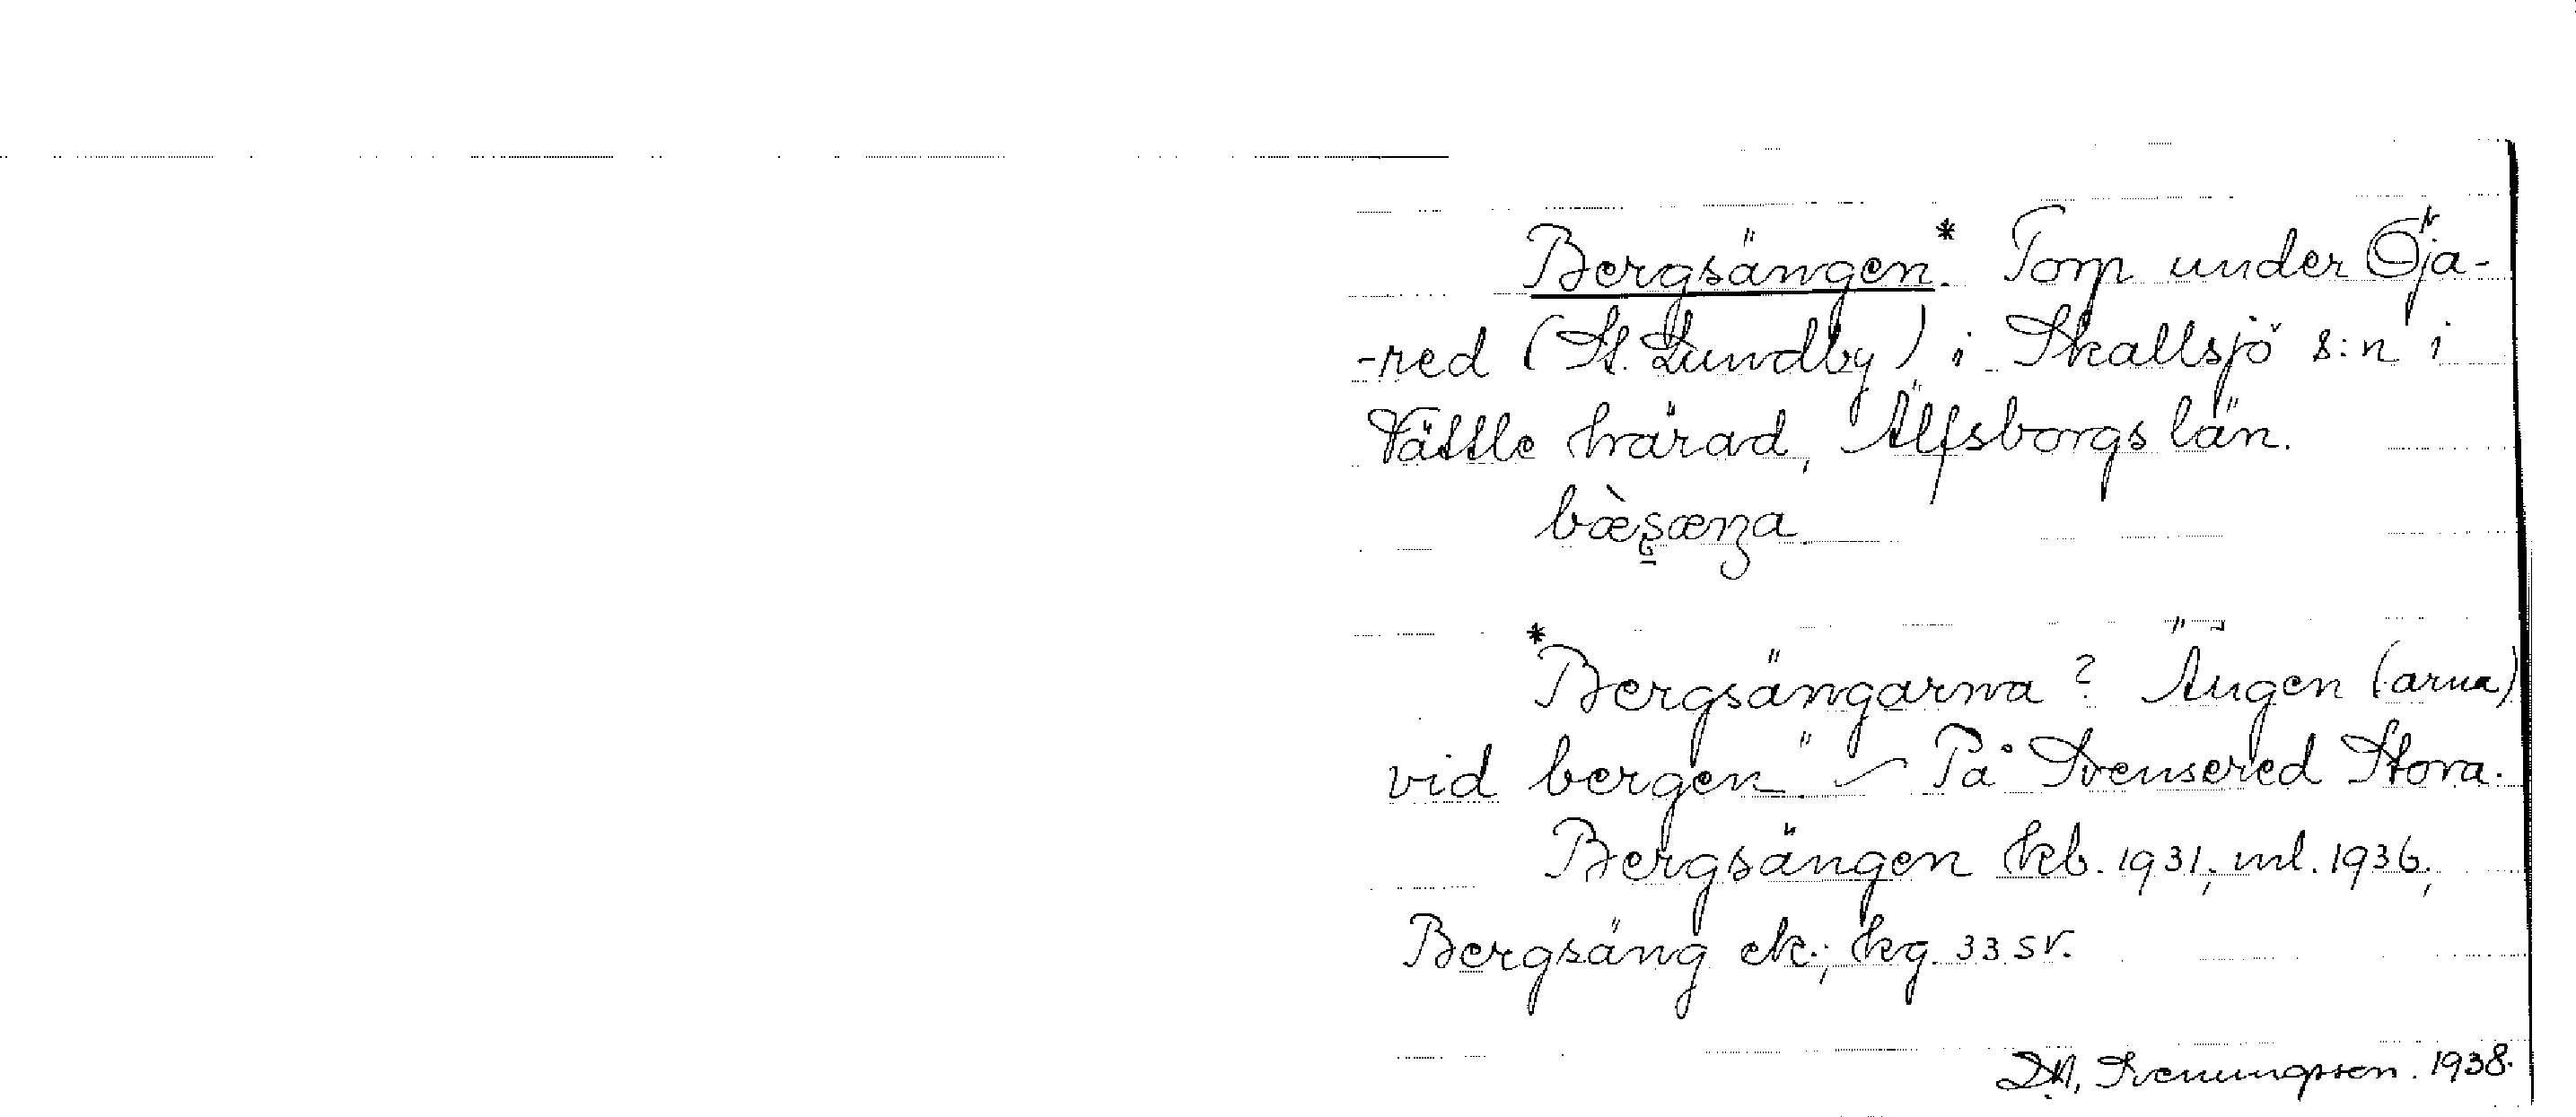 Bergsängen.* Torp under Öja-
-red (St. Lundby) i Skallsjö s:n i
Vättle härad, Älfsborgs län.
bæ̀şæŋa
*Bergsängarna? "Ängen (arna)
vid bergen". – På Svensered Stora.
Bergsängen kb. 1931; ml. 1936;
Bergsäng ek.; kg. 33 SV.
D.A. Svenungsson. 1938.